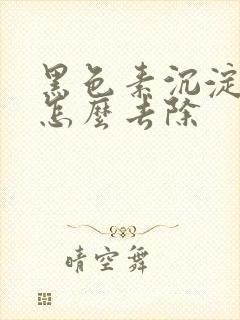 黑色素沉淀
怎麼去除
晴空舞